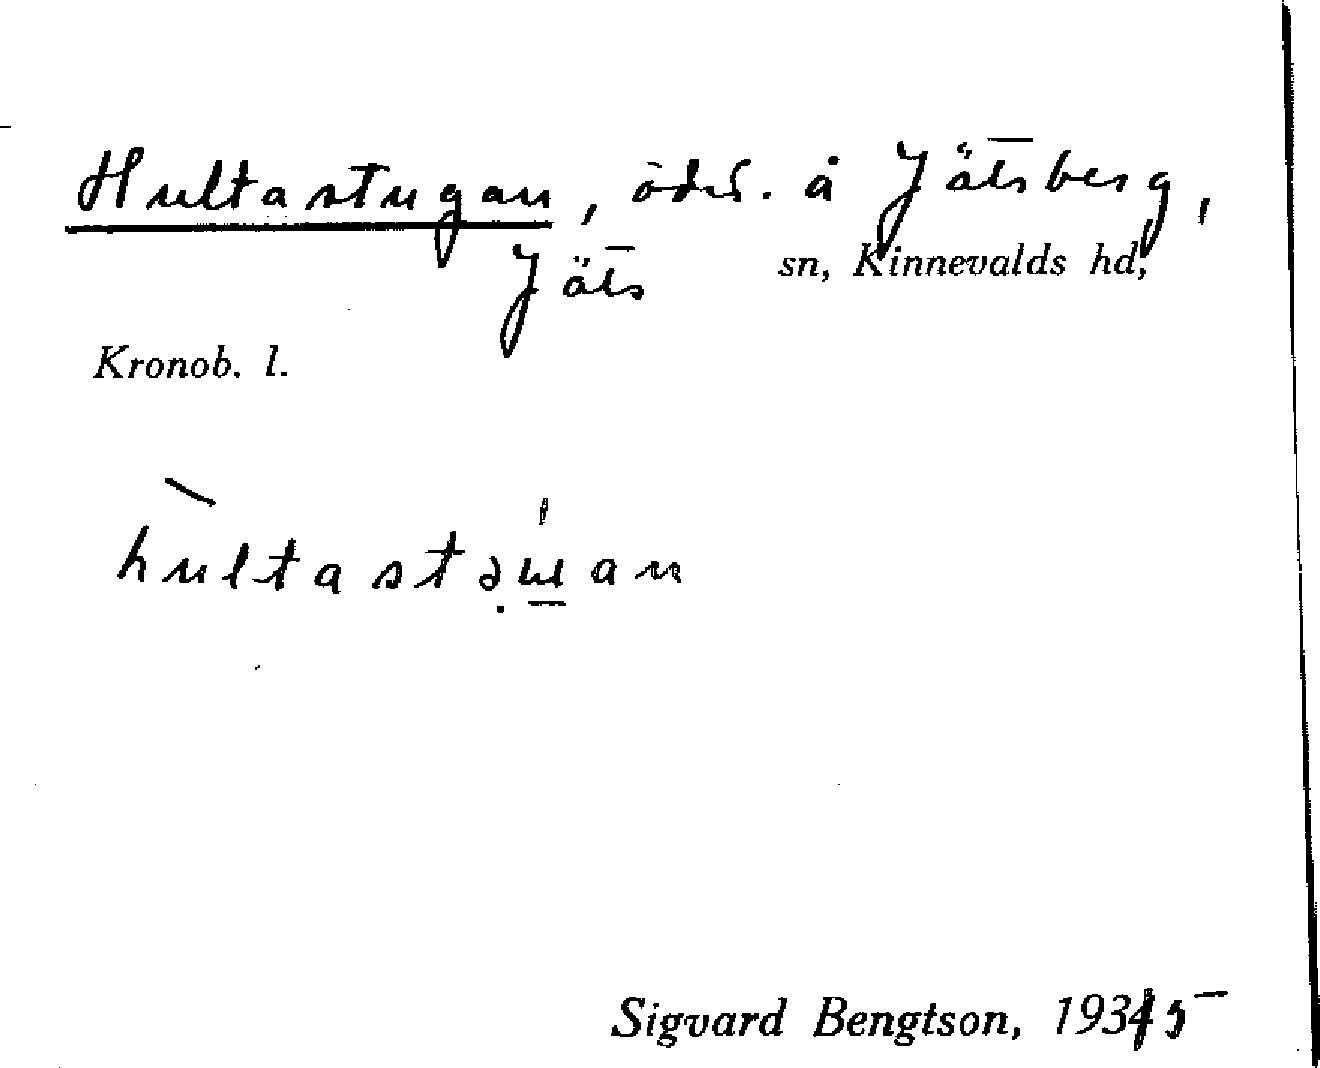 Hultastugan, öds. å Jätsberg,
Jäts sn, Kinnevalds hd,
Kronob. l.
Sigvard Bengtson, 1935